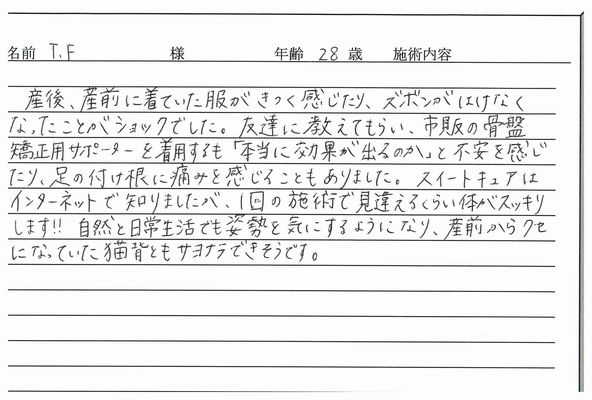 名前 T.F 様 年齢 28 歳 施術内容
産後、産前に着ていた服がきつく感じたり、ズボンがはけなく
なったことがショックでした。友達に教えてもらい、市販の骨盤
矯正用サポーターを着用するも「本当に効果が出るのか」と不安を感じ
たり、足の付け根に痛みを感じることもありました。スイートキュアは
インターネットで知りましたが、1回の施術で見違えるくらい体がスッキリ
します!! 自然と日常生活でも姿勢を気にするようになり、産前からクセ
になっていた猫背ともサヨナラできそうです。